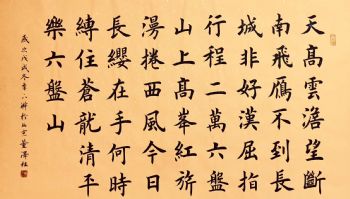 天高雲澹望斷
南飛鴈不到長
城非好漢屈指
行程二萬六盤
山上高峯紅旂
漫捲西風今日
長纓在手何時
縛住蒼龍清平
樂六盤山
歲次戊戌冬季